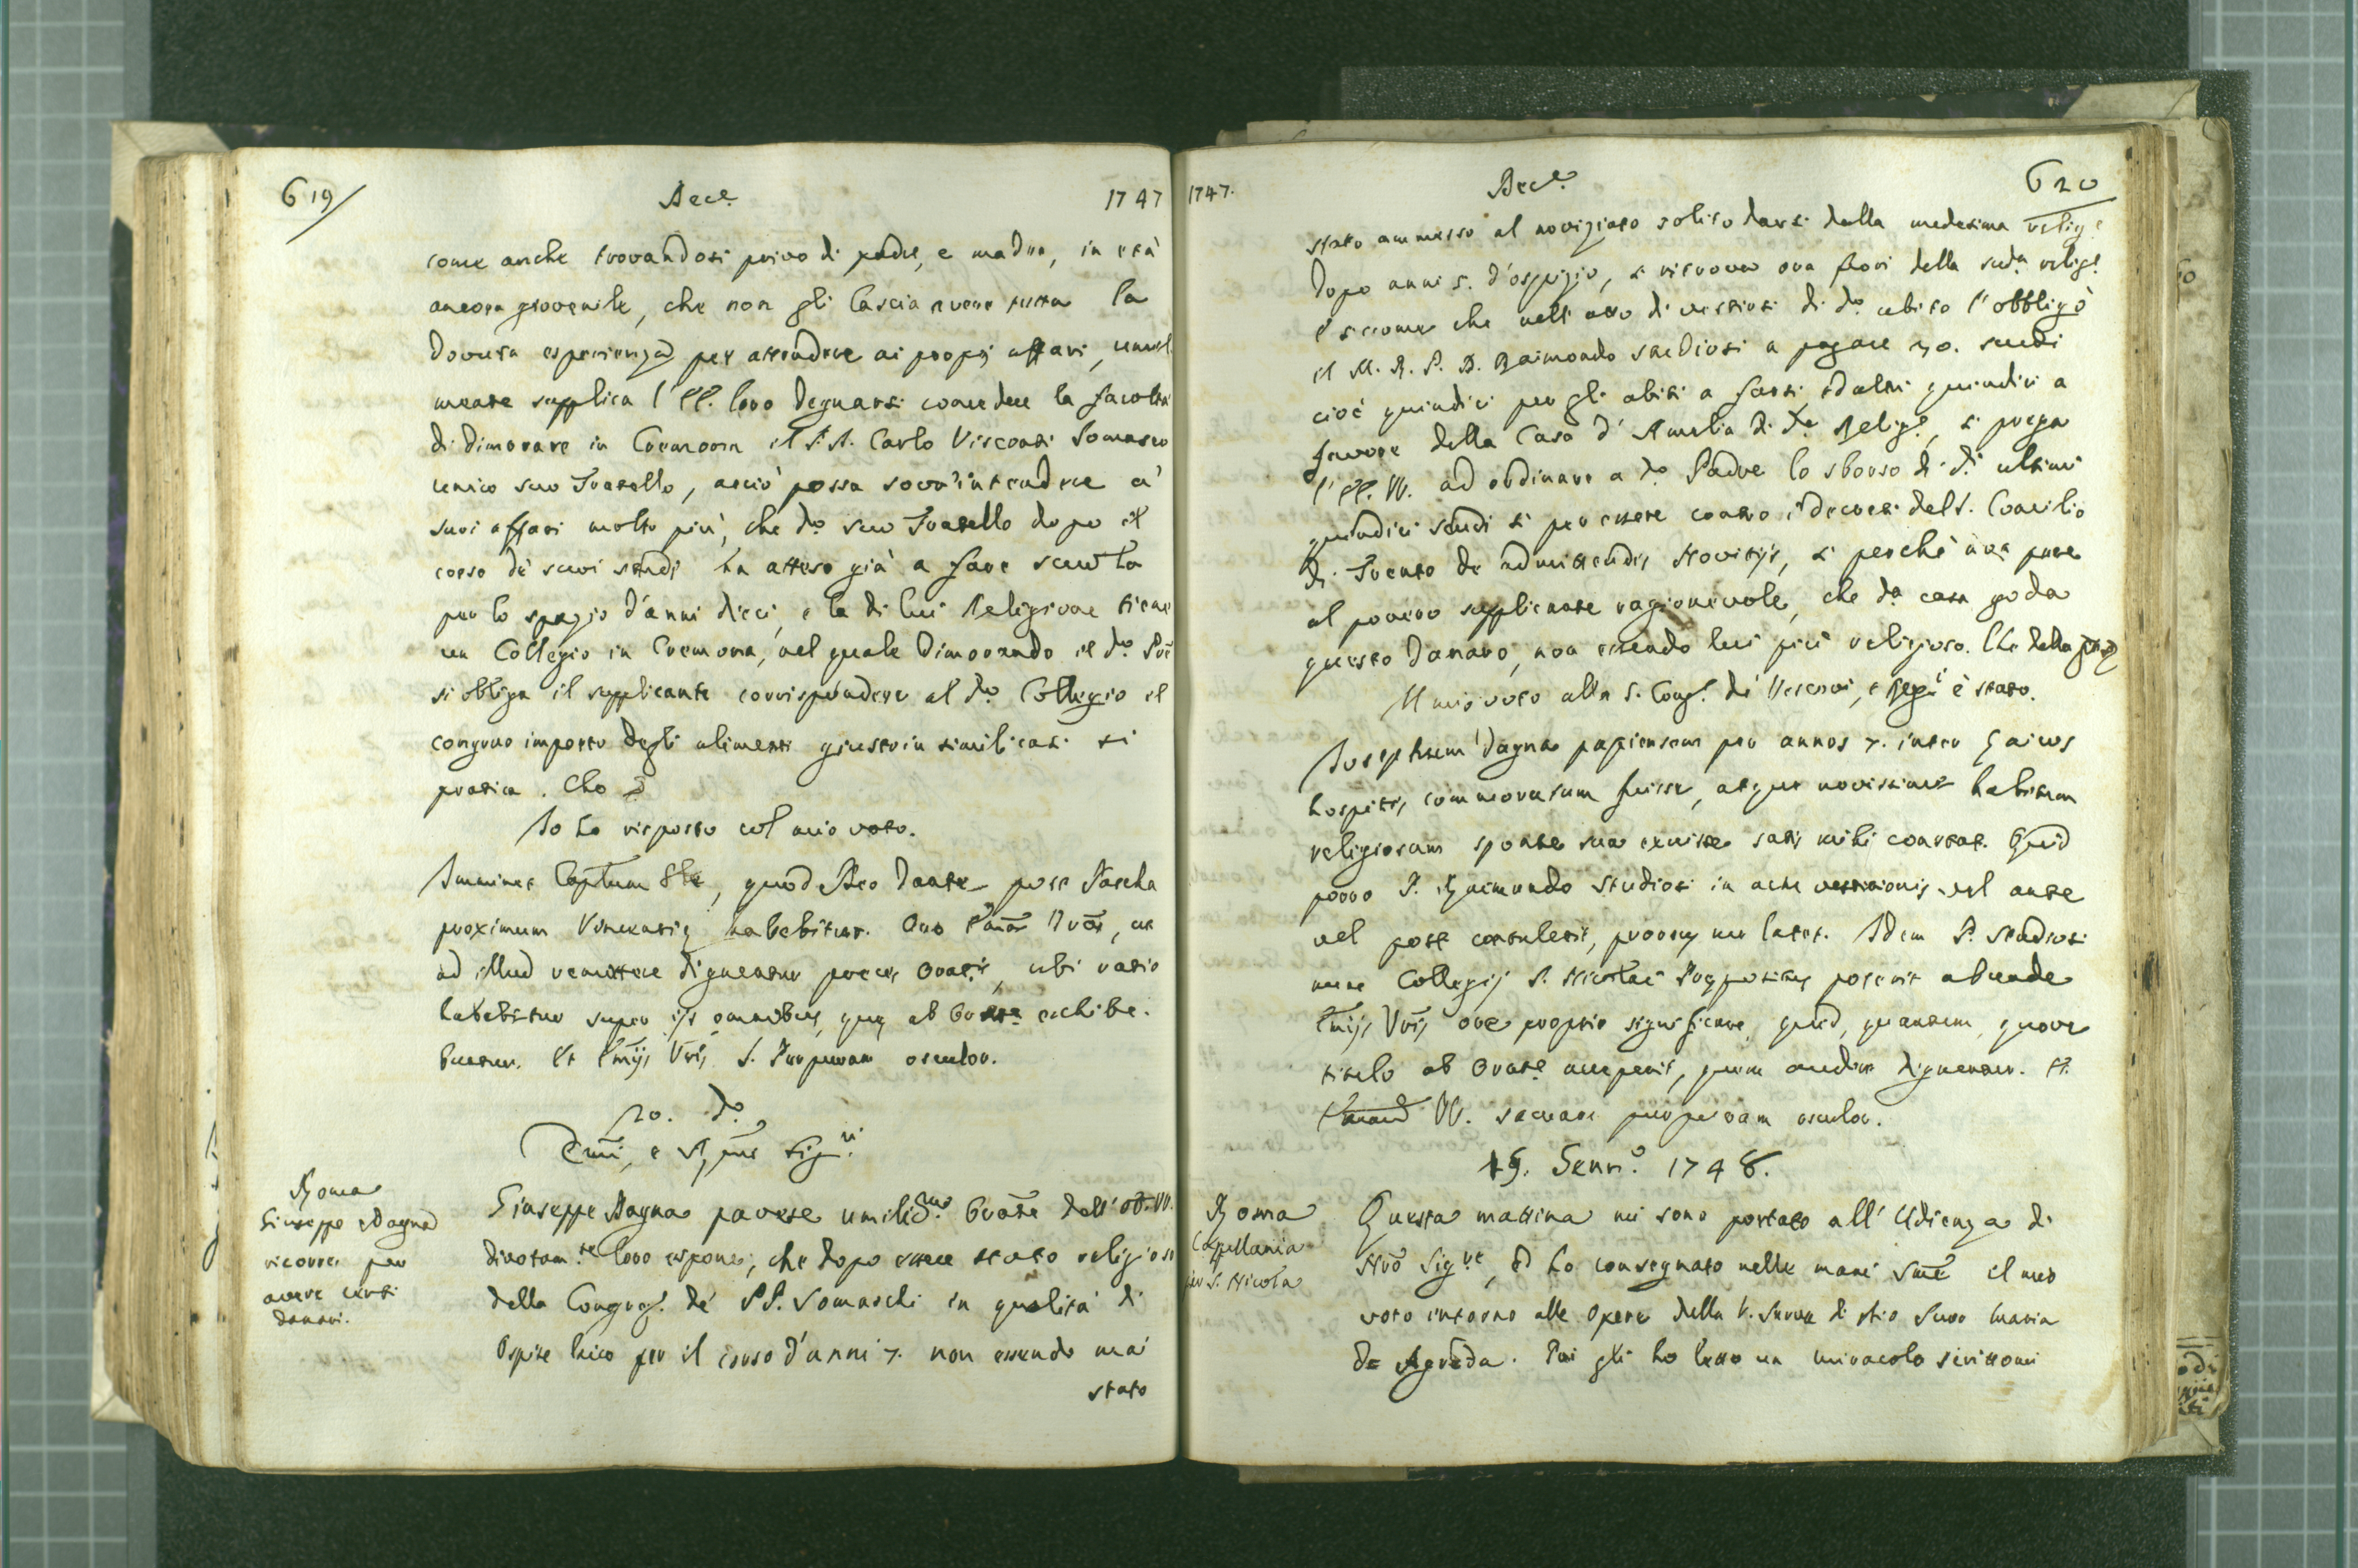 619
Acc.e
1747
come anche trovandosi privo di padre, e madre, in età
ancora giovenile, che non gli lascia avere tutta la
dovuta esperienza per attendere ai proprj affari, umil
mente supplica l'EE. loro degnarsi concedere la facoltà
di dimorare in Cremona il P. D. Carlo Visconti Somasco
unico suo Fratello, acciò possa sovr'intendere a'
suoi affari molto più, che d.o suo Fratello dopo il
corso de' suoi studj ha atteso già a fare scuola
per lo spazio d'anni dieci, e la di lui Religione tiene
un Collegio in Cremona, nel quale dimorando il d.o Pre
si obliga il supplicante corrispondere al d.o Collegio il
congruo importo degli alimenti giusto in simili casi si
pratica. Che
Io ho risposto col mio voto.
Imminet Captum Gle, quod Deo dante post Pascha
proximum Venetiis habebitur. Oro Emas Vras, ut
ad illud remittere dignentur preces Oratis, ubi ratio
habebitur super iis omnibus, quae ab Orate exhibe-
buntur. Et Emis Vris S. Purpuram osculor.
20. d.o
Emi, e Rmi Sig.ri
Roma
Giuseppe Magna
ricorre per
avere certi
danari.
Giuseppe Magna pavese umiliss.mo Orate dell'EE. VV.
divotam.te loro espone, che dopo essere stato religioso
della Congreg.e de' PP. Somaschi in qualità di
Ospite laico per il corso d'anni 7. non essendo mai
stato
1747.
Acc.e
620
stato ammesso al noviziato solito darsi dalla medesima relig.e
dopo anni 5. d'ospizio, si ritrova ora fuori della sud.a relig.e
E siccome che nell'atto di vestirsi di d.o abito l'obbligò
il M. R. P. D. Raimondo Studiosi a pagare 30. scudi
cioè quindici per gli abiti a farsi, ed altri quindici a
favore della Casa d'Amelia di d.a Relig.e, si prega
l'EE. VV. ad ordinare a d.o Padre lo sborso di d.i ultimi
quindici scudi sì per essere contro i decreti del S. Concilio
di Trento de admittendis Novitijs, sì perchè non pare
al povero supplicante ragionevole, che d.a casa goda
questo danaro, non essendo lui più religioso. Che della
Il mio voto alla S. Cong.e de' Vescovi, e Reg.i è stato.
Josephum Magna papiensem per annos 7. inter laicos
hospites commoratum fuisse, atque novissime habitum
religiosum sponte sua exuisse satis mihi constat. Quid
porro P. Raimundo Studiosi in actu vestitionis vel ante
vel post contulerit, prorsus me latet. Idem P. Studiosi
nunc Collegij S. Nicolai Praepositus poterit abunde
Emis Vris ore proprio significare, quid, quantum, quove
titulo ab Orate acceperit, quem audire dignentur. Et
VV. sacram purpuram osculor.
15. Genn.o 1748.
Roma
Capellania
per S. Nicola
Questa mattina mi sono portato all'Udienza di
Nro Sig.re, ed ho consegnato nelle mani Sme il mio
voto intorno alle Opere della V. Serva di Dio Suor Maria
de Agreda. Poi gli ho letto un miracolo scrittomi